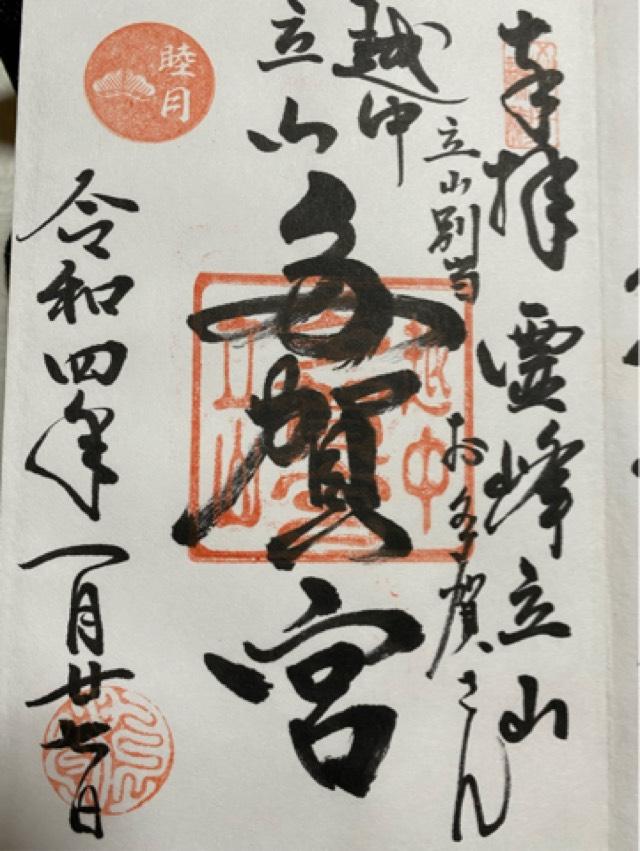 奉拝 霊峰立山
立山別当 お多賀さん
越中
立山
多賀宮
越中
立山
睦月
令和四年一月廿七日